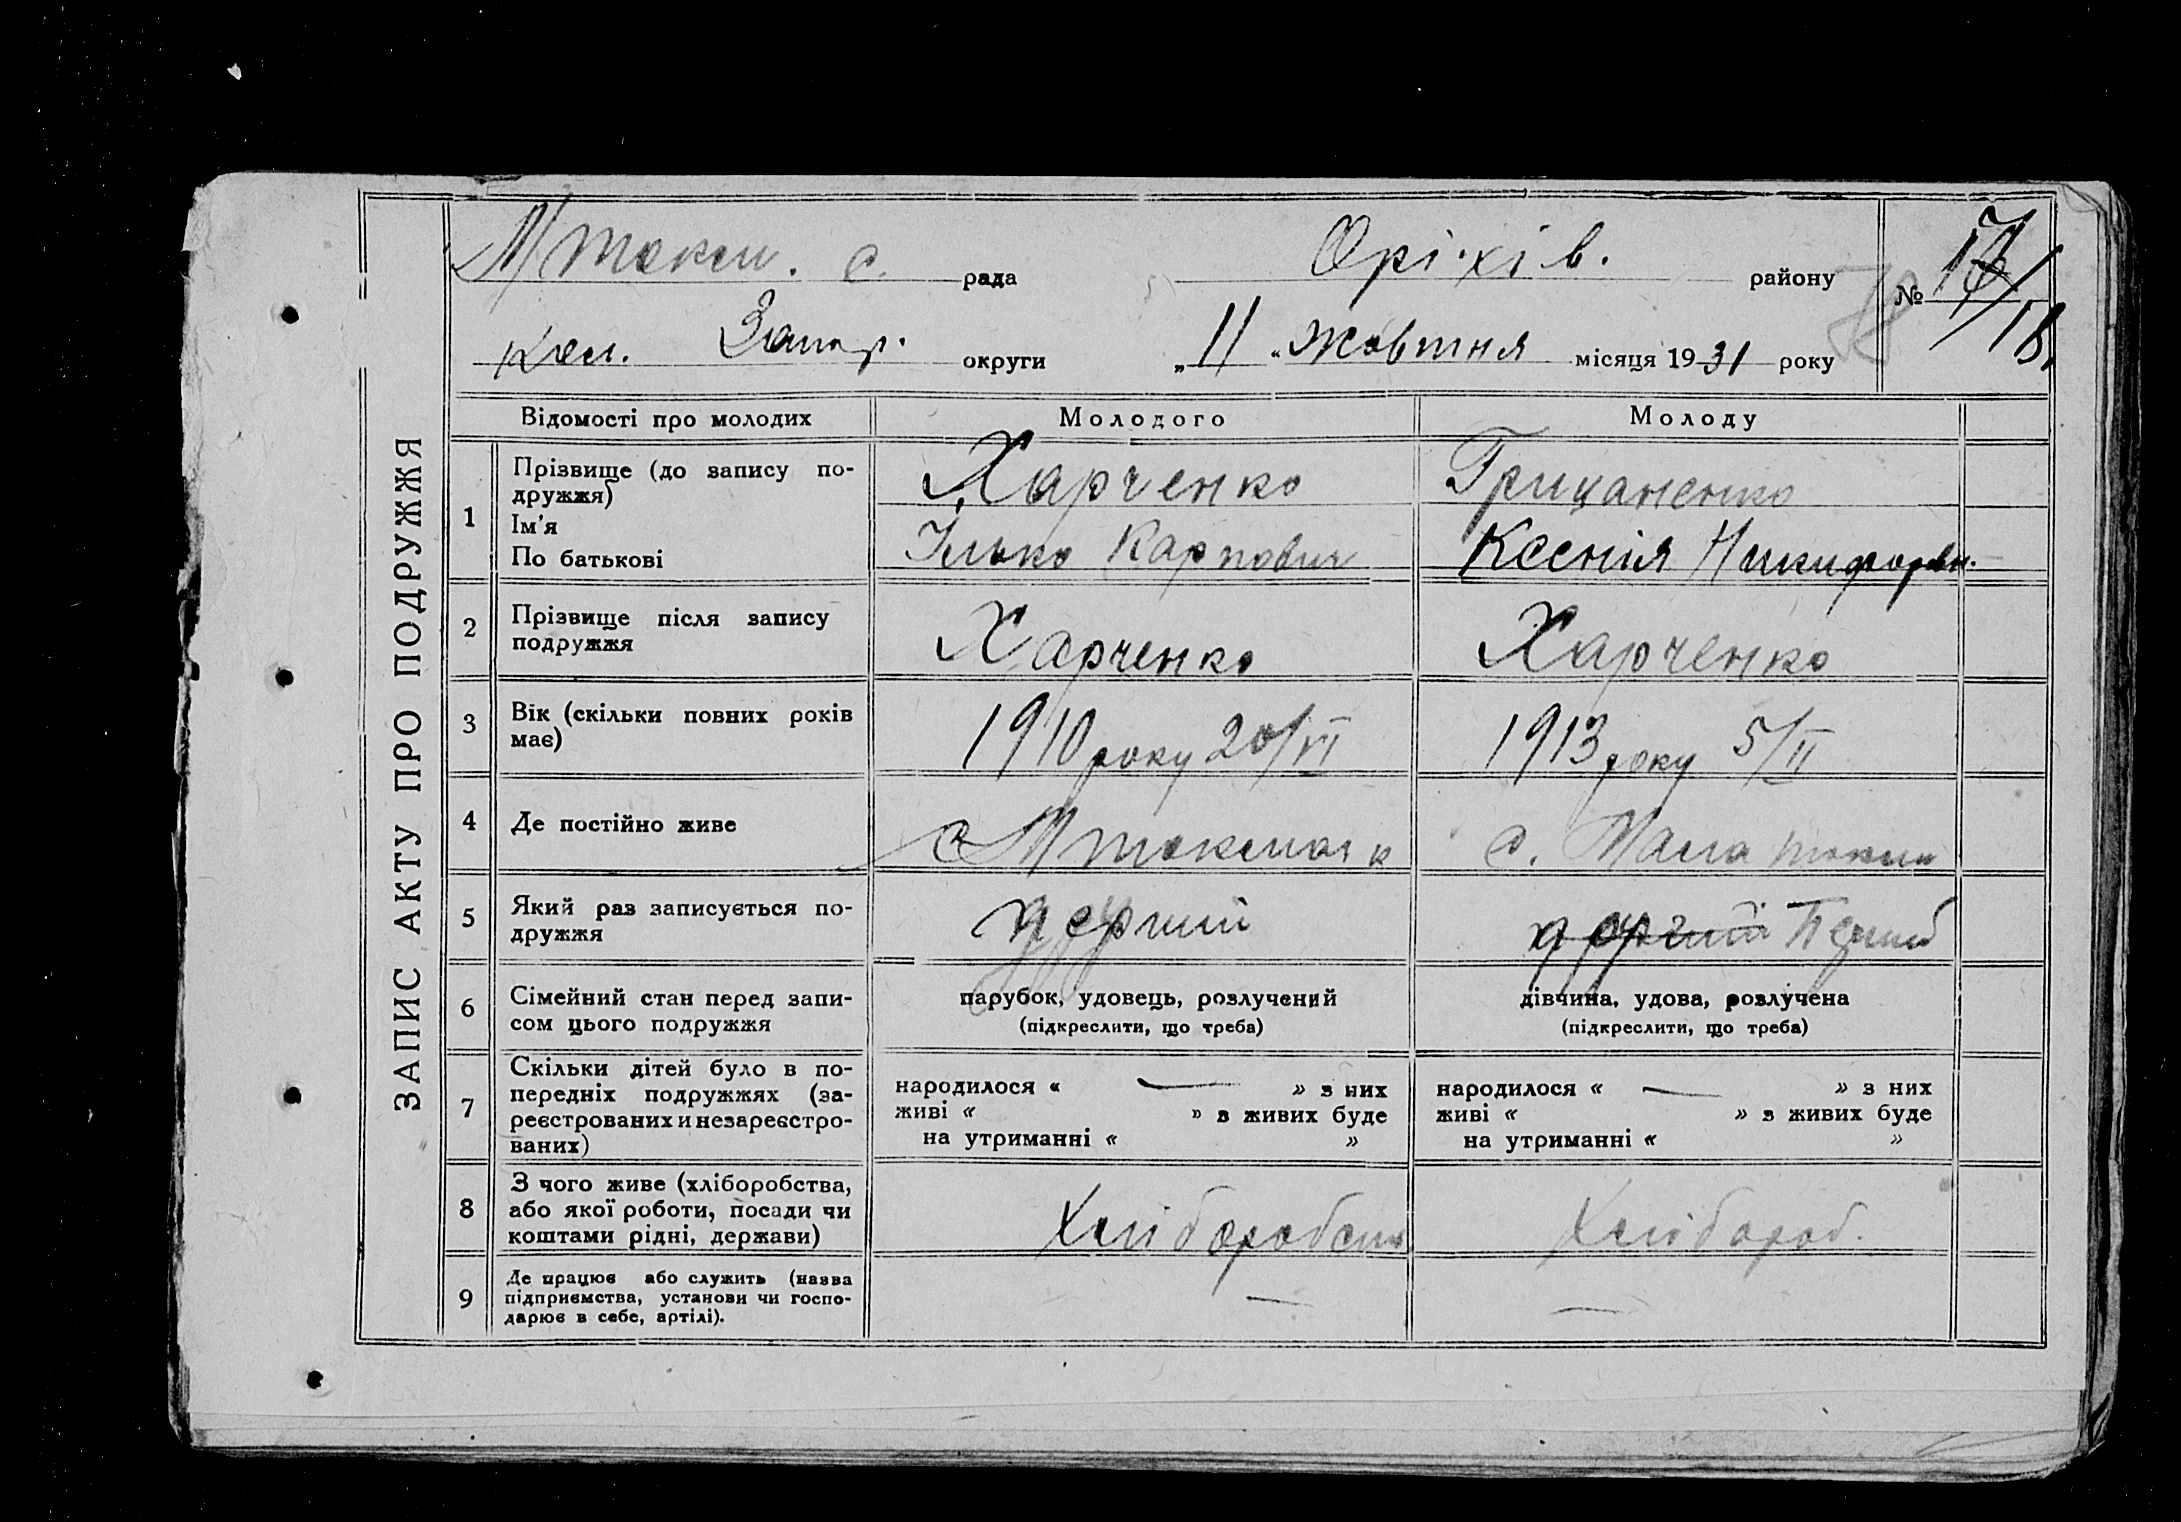 ЗАПИС АКТУ ПРО ПОДРУЖЖЯ
М/токм. с. рада Оріхів. району
кол. Запор. округи „11“ жовтня місяця 1931 року
№ 17/ІВ
Відомості про молодих Молодого Молоду
1 Прізвище (до запису по-
дружжя) Харченко Грицаненко
Ім'я
По батькові Ілько Карпович Ксенія Никифоровн.
2 Прізвище після запису
подружжя Харченко Харченко
3 Вік (скільки повних років
має) 1910 року 20/VI 1913 року 5/II
4 Де постійно живе с М токмачк с. Мала токма
5 Який раз записується по-
дружжя перший другий Перший
6 Сімейний стан перед запи-
сом цього подружжя
парубок, удовець, розлучений
(підкреслити, що треба)
дівчина, удова, розлучена
(підкреслити, що треба)
7 Скільки дітей було в по-
передніх подружжях (за-
реєстрованих и незареєстро-
ваних)
народилося « — » з них
живі « » з живих буде
на утриманні « »
народилося « — » з них
живі « » з живих буде
на утриманні « »
8 З чого живе (хліборобства,
або якої роботи, посади чи
коштами рідні, держави) Хліборобств Хлібороб.
9 Де працює або служить (назва
підприємства, установи чи госпо-
дарює в себе, артілі). — —